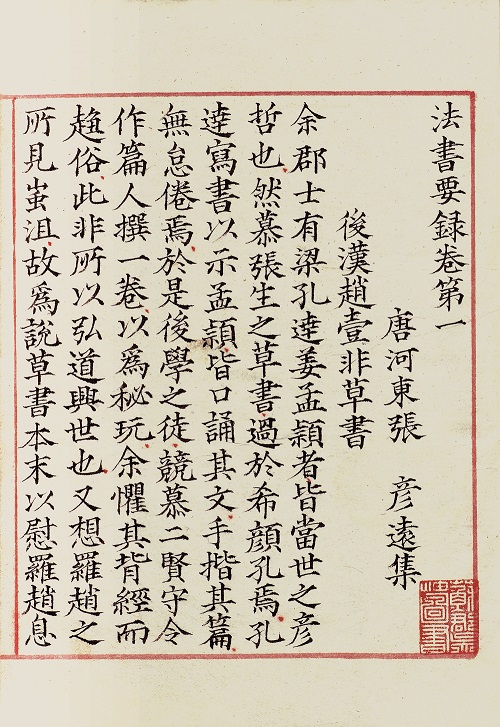 法書要録卷第一
唐河東張彦遠集
後漢趙壹非草書
余郡士有梁孔逹姜孟頴者皆當世之彦
哲也然慕張生之草書過於希顔孔焉孔
逹寫書以示孟頴皆口誦其文手揩其篇
無怠倦焉於是後學之徒競慕二賢守令
作篇人撰一卷以爲秘玩余懼其背經而
趍俗此非所以弘道興世也又想羅趙之
所見蚩沮故爲説草書本末以慰羅趙息